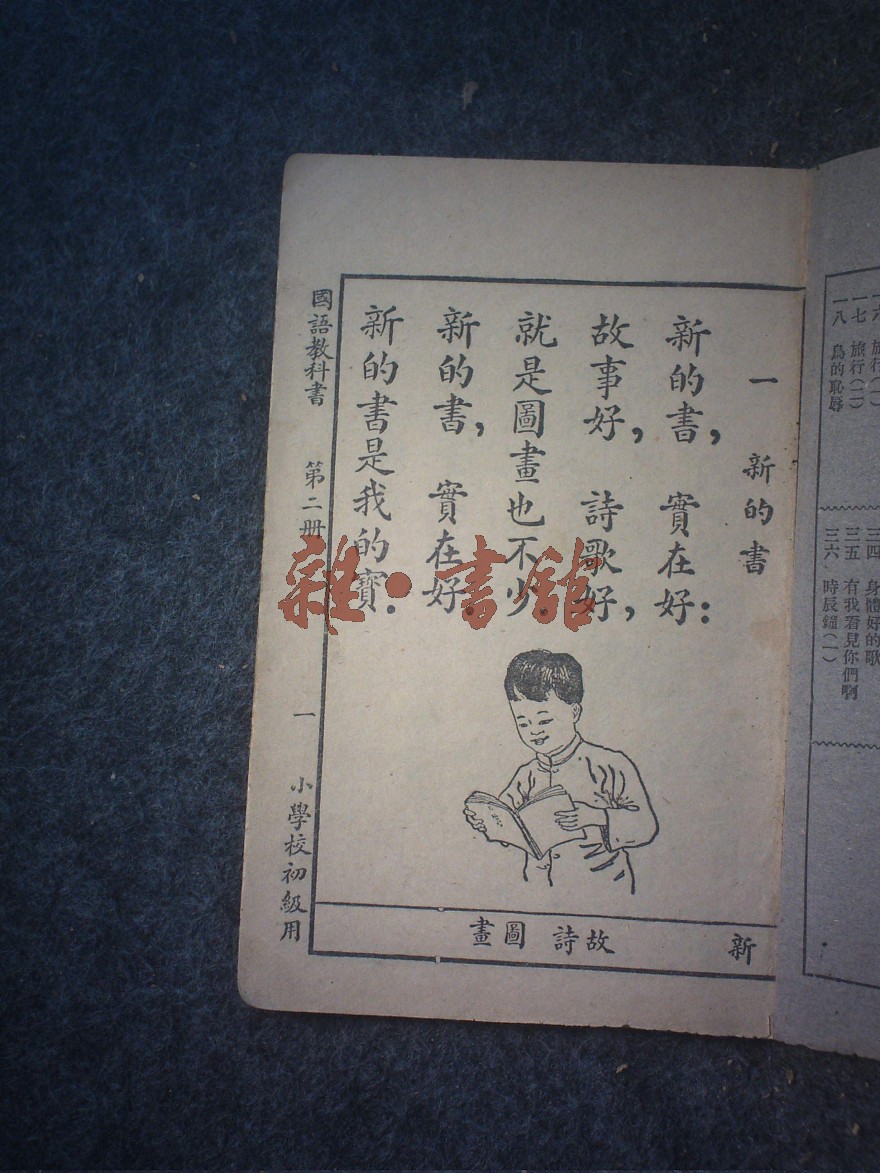 一六 旅行(一)
一七 旅行(二)
一八 鳥的恥辱
三四 身體好的歌
三五 有我看見你們啊
三六 時辰鐘(一)
一 新的書
新的書， 實在好：
故事好， 詩歌好，
就是圖畫也不少。
新的書， 實在好。
新的書是我的寶。
新 故詩 圖畫
國語教科書 第二册 一 小學校初級用
雜·書館